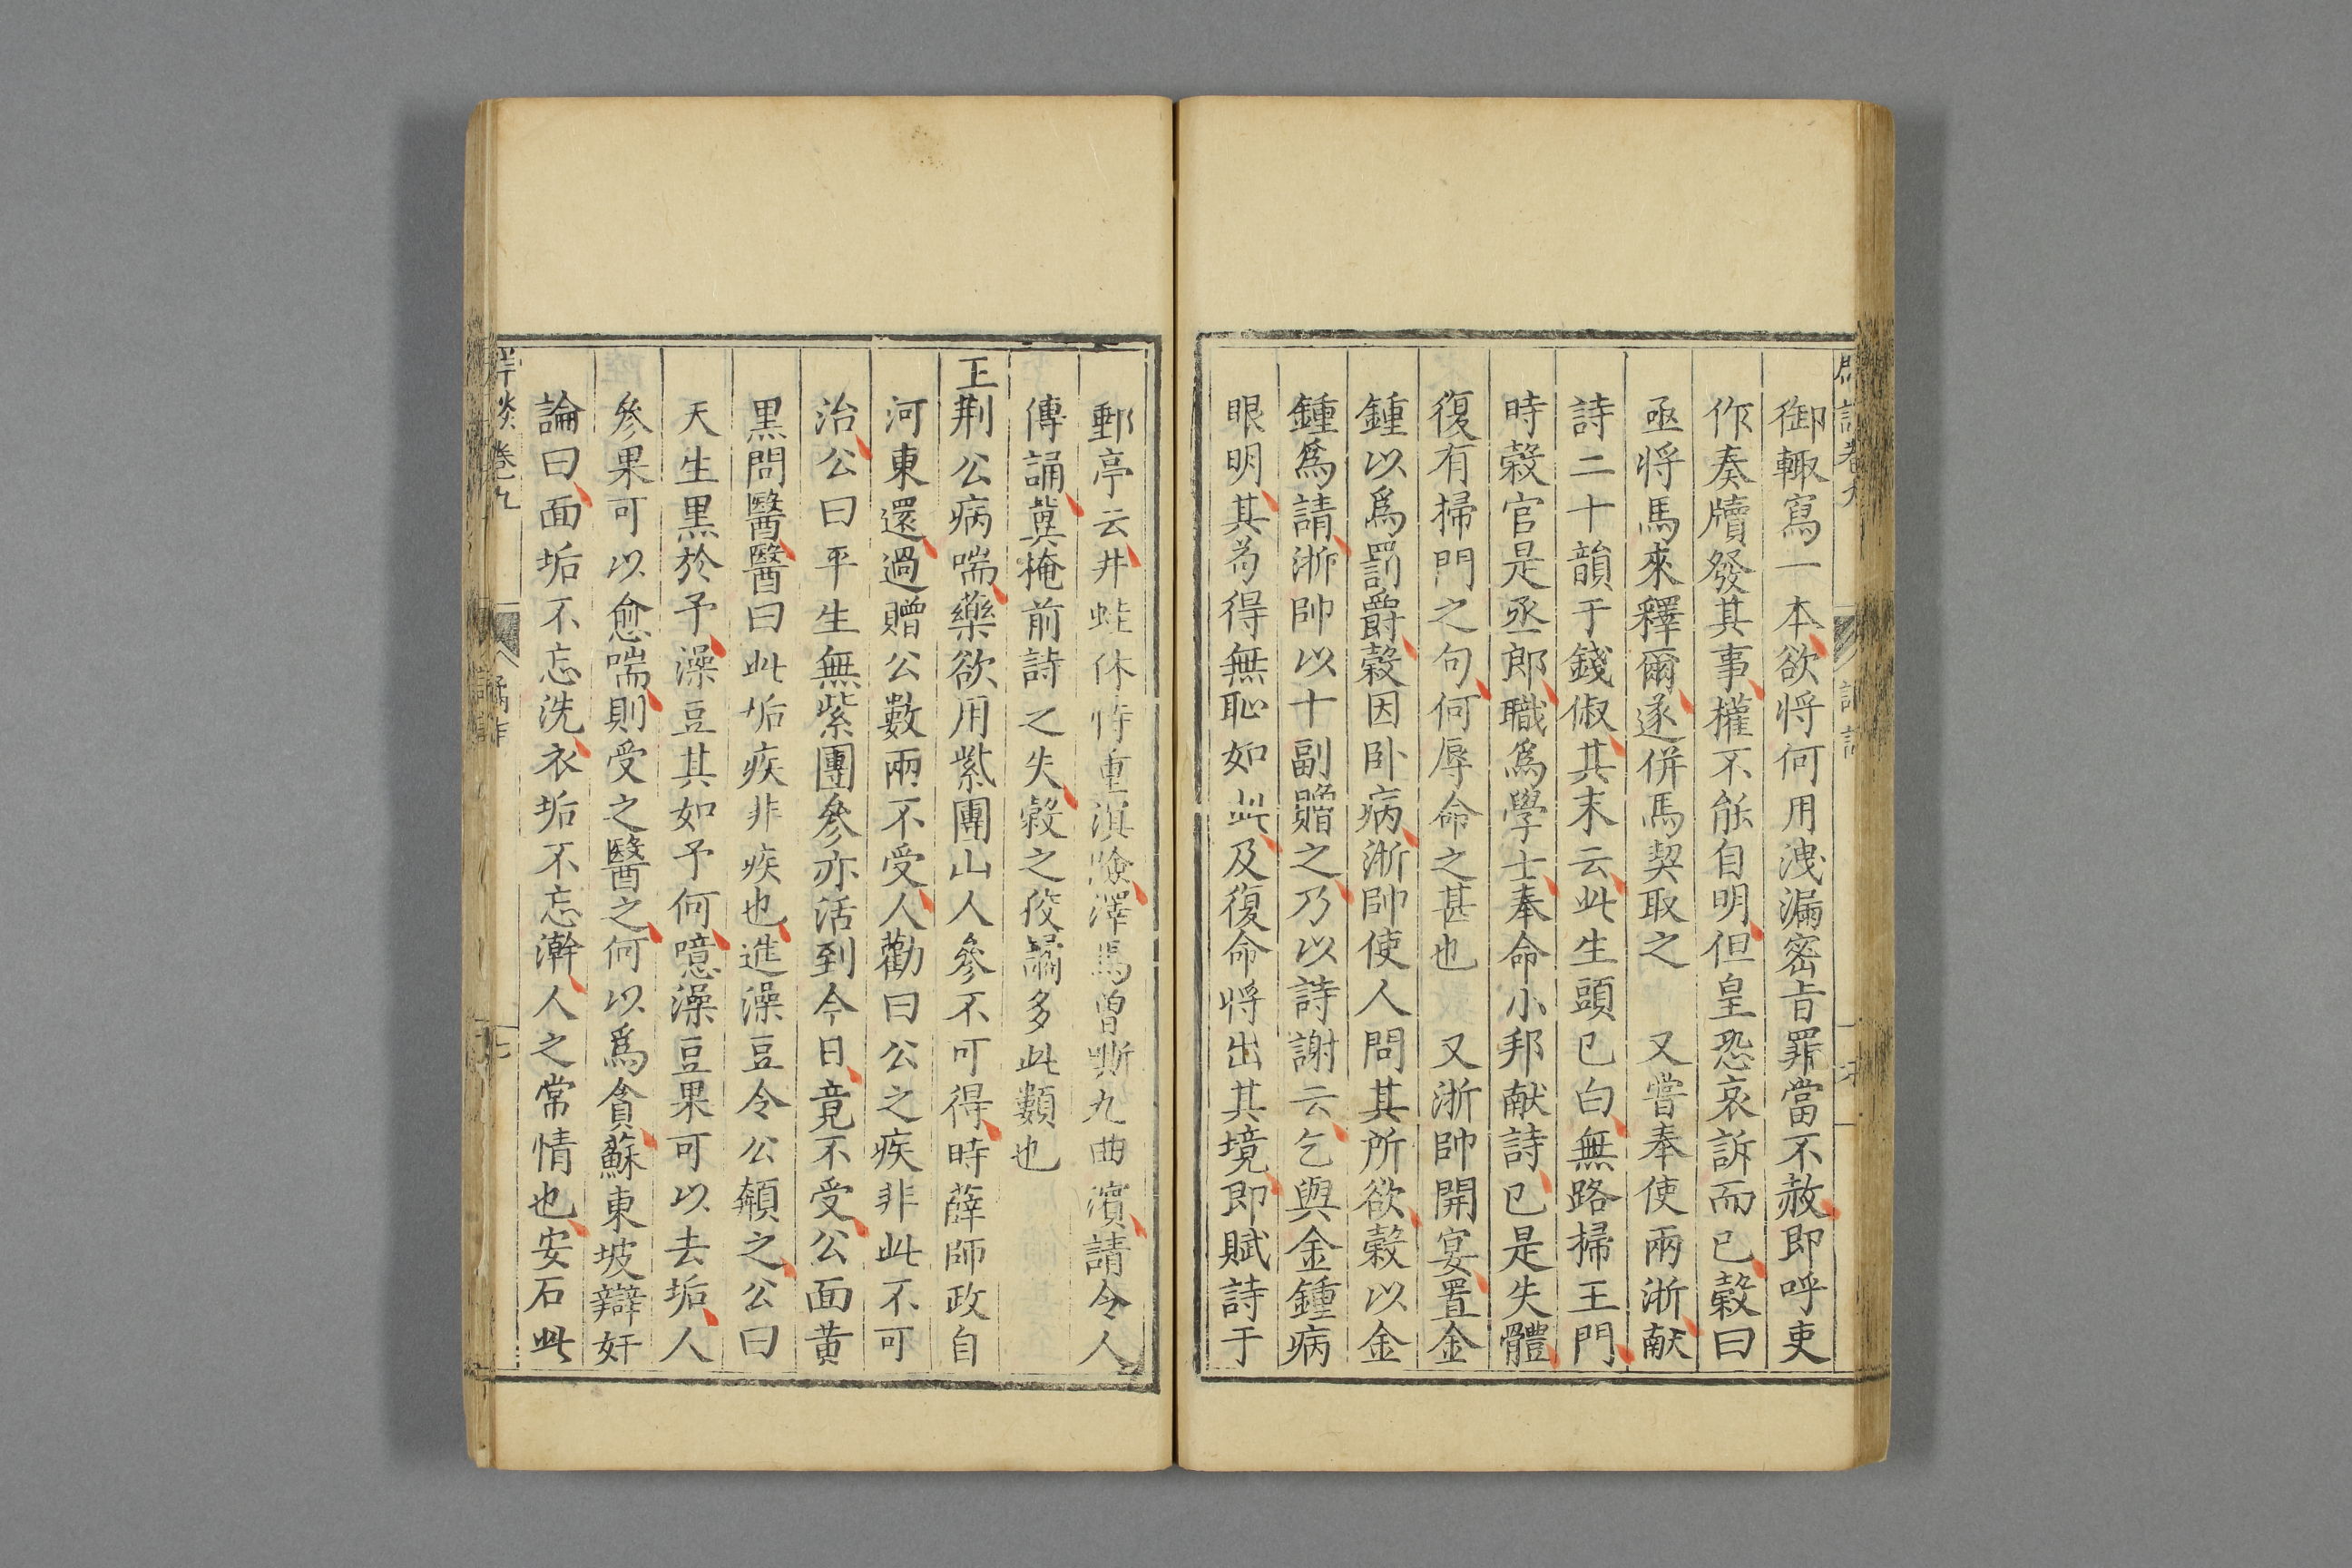 御輙寫一本欲将何用洩漏密旨罪當不赦即呼吏
作奏牘發其事權不能自明但皇恐哀訴而已穀曰
亟将馬來釋爾遂併馬契取之 又嘗奉使兩浙献
詩二十韻于錢俶其末云此生頭已白無路掃王門
時穀官是丞郎職爲學士奉命小邦献詩已是失體
復有掃門之句何辱命之甚也 又浙帥開宴置金
鍾以爲罰爵穀因卧病浙帥使人問其所欲穀以金
鍾爲請浙帥以十副贈之乃以詩謝云乞與金鍾病
眼明其苟得無恥如此及復命将出其境即賦詩于
郵亭云井蛙休恃重溟險澤馬曾嘶九曲濱請令人
傳誦冀掩前詩之失穀之狡譎多此類也
王荆公病喘藥欲用紫團山人參不可得時薛師政自
河東還過贈公數兩不受人勸曰公之疾非此不可
治公曰平生無紫團參亦活到今日竟不受公面黄
黒問醫醫曰此垢疾非疾也進澡豆令公頮之公曰
天生黒於予澡豆其如予何噫澡豆果可以去垢人
參果可以愈喘則受之醫之何以爲貪蘇東坡辯奸
論曰面垢不忘洗衣垢不忘澣人之常情也安石此
卷九